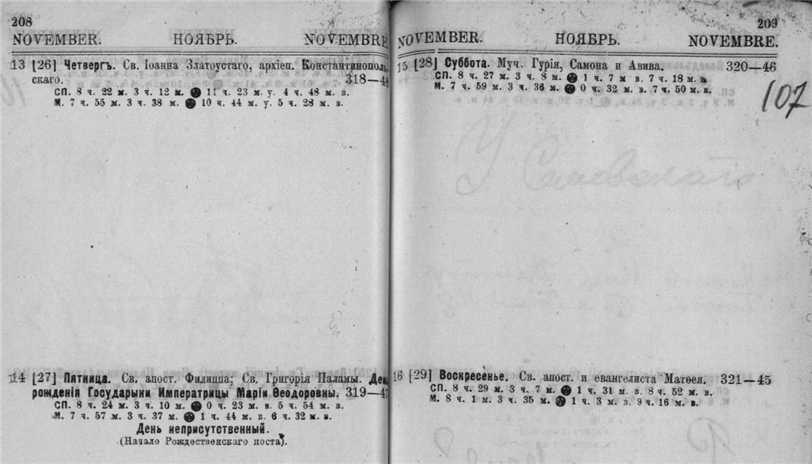 208
NOVEMBER. НОЯБРЬ. NOVEMBRE
13 [26] Четвергъ. Св. Іоанна Златоустаго, архіеп. Константинополь
скаго. 318—48
СП. 8 ч. 22 м. 3 ч. 12 м. 11 ч. 23 м. у. 4 ч. 48 м. в.
М. 7 ч. 55 м. 3 ч. 38 м. 10 ч. 44 м. у. 5 ч. 28 м. в.
14 [27] Пятница. Св. апост. Филиппа; Св. Григорія Паламы. День
рожденія Государыни Императрицы Маріи Ѳеодоровны. 319—47
СП. 8 ч. 24 м. 3 ч. 10 м. 0 ч. 23 м. в. 5 ч. 54 м. в.
М. 7 ч. 57 м. 3 ч. 37 м. 1 ч. 44 м. в. 6 ч. 32 м. в.
День неприсутственный.
(Начало Рождественскаго поста).
209
NOVEMBER. НОЯБРЬ. NOVEMBRE.
15 [28] Суббота. Муч. Гурія, Самона и Авива. 320—46
СП. 8 ч. 27 м. 3 ч. 8 м. 1 ч. 7 м в. 7 ч. 18 м. в.
М. 7 ч. 59 м. 3 ч. 36 м. 0 ч. 32 м. в. 7 ч. 50 м. в.
107
16 [29] Воскресенье. Св. апост. и евангелиста Матѳея. 321—45
СП. 8 ч. 29 м. 3 ч. 7 м. 1 ч. 31 м. в. 8 ч. 52 м. в.
М. 8 ч. 1 м. 3 ч. 35 м. 1 ч. 3 м. в. 9 ч. 16 м. в.